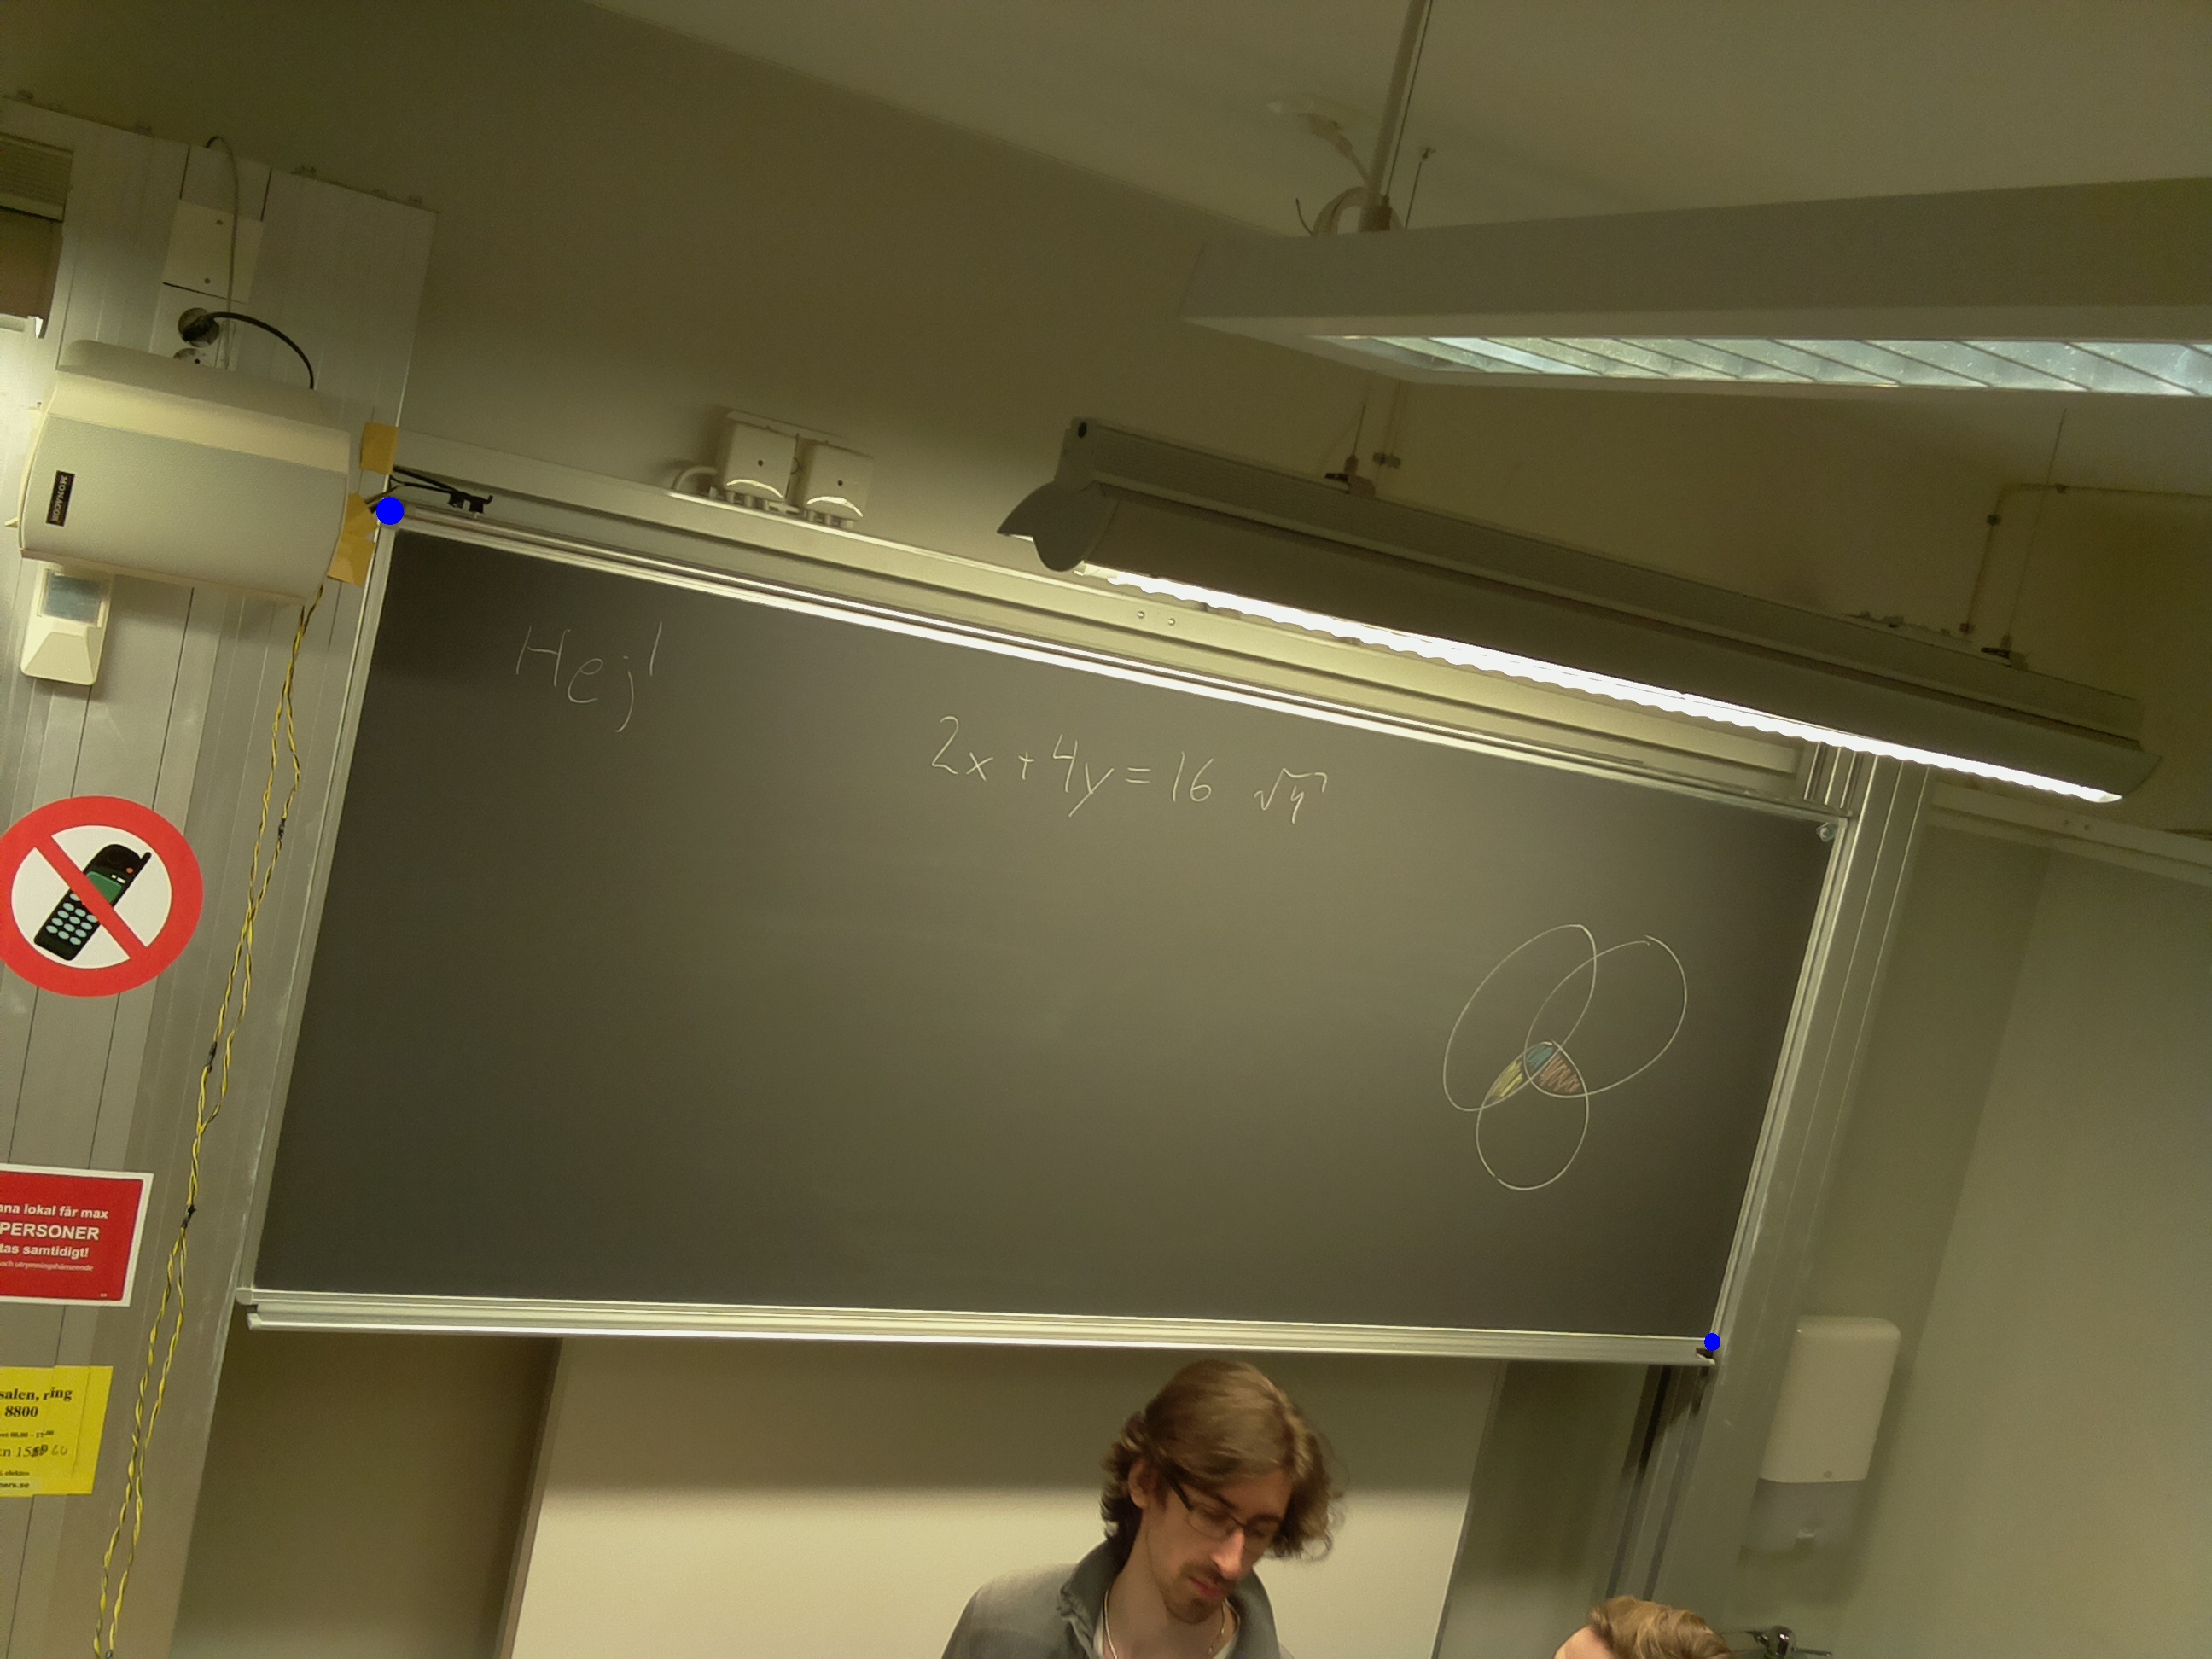 MONACOR
Hej!
2x + 4y = 16 √4
nna lokal får max
PERSONER
tas samtidigt!
och utrymningshänseende
salen, ring
8800